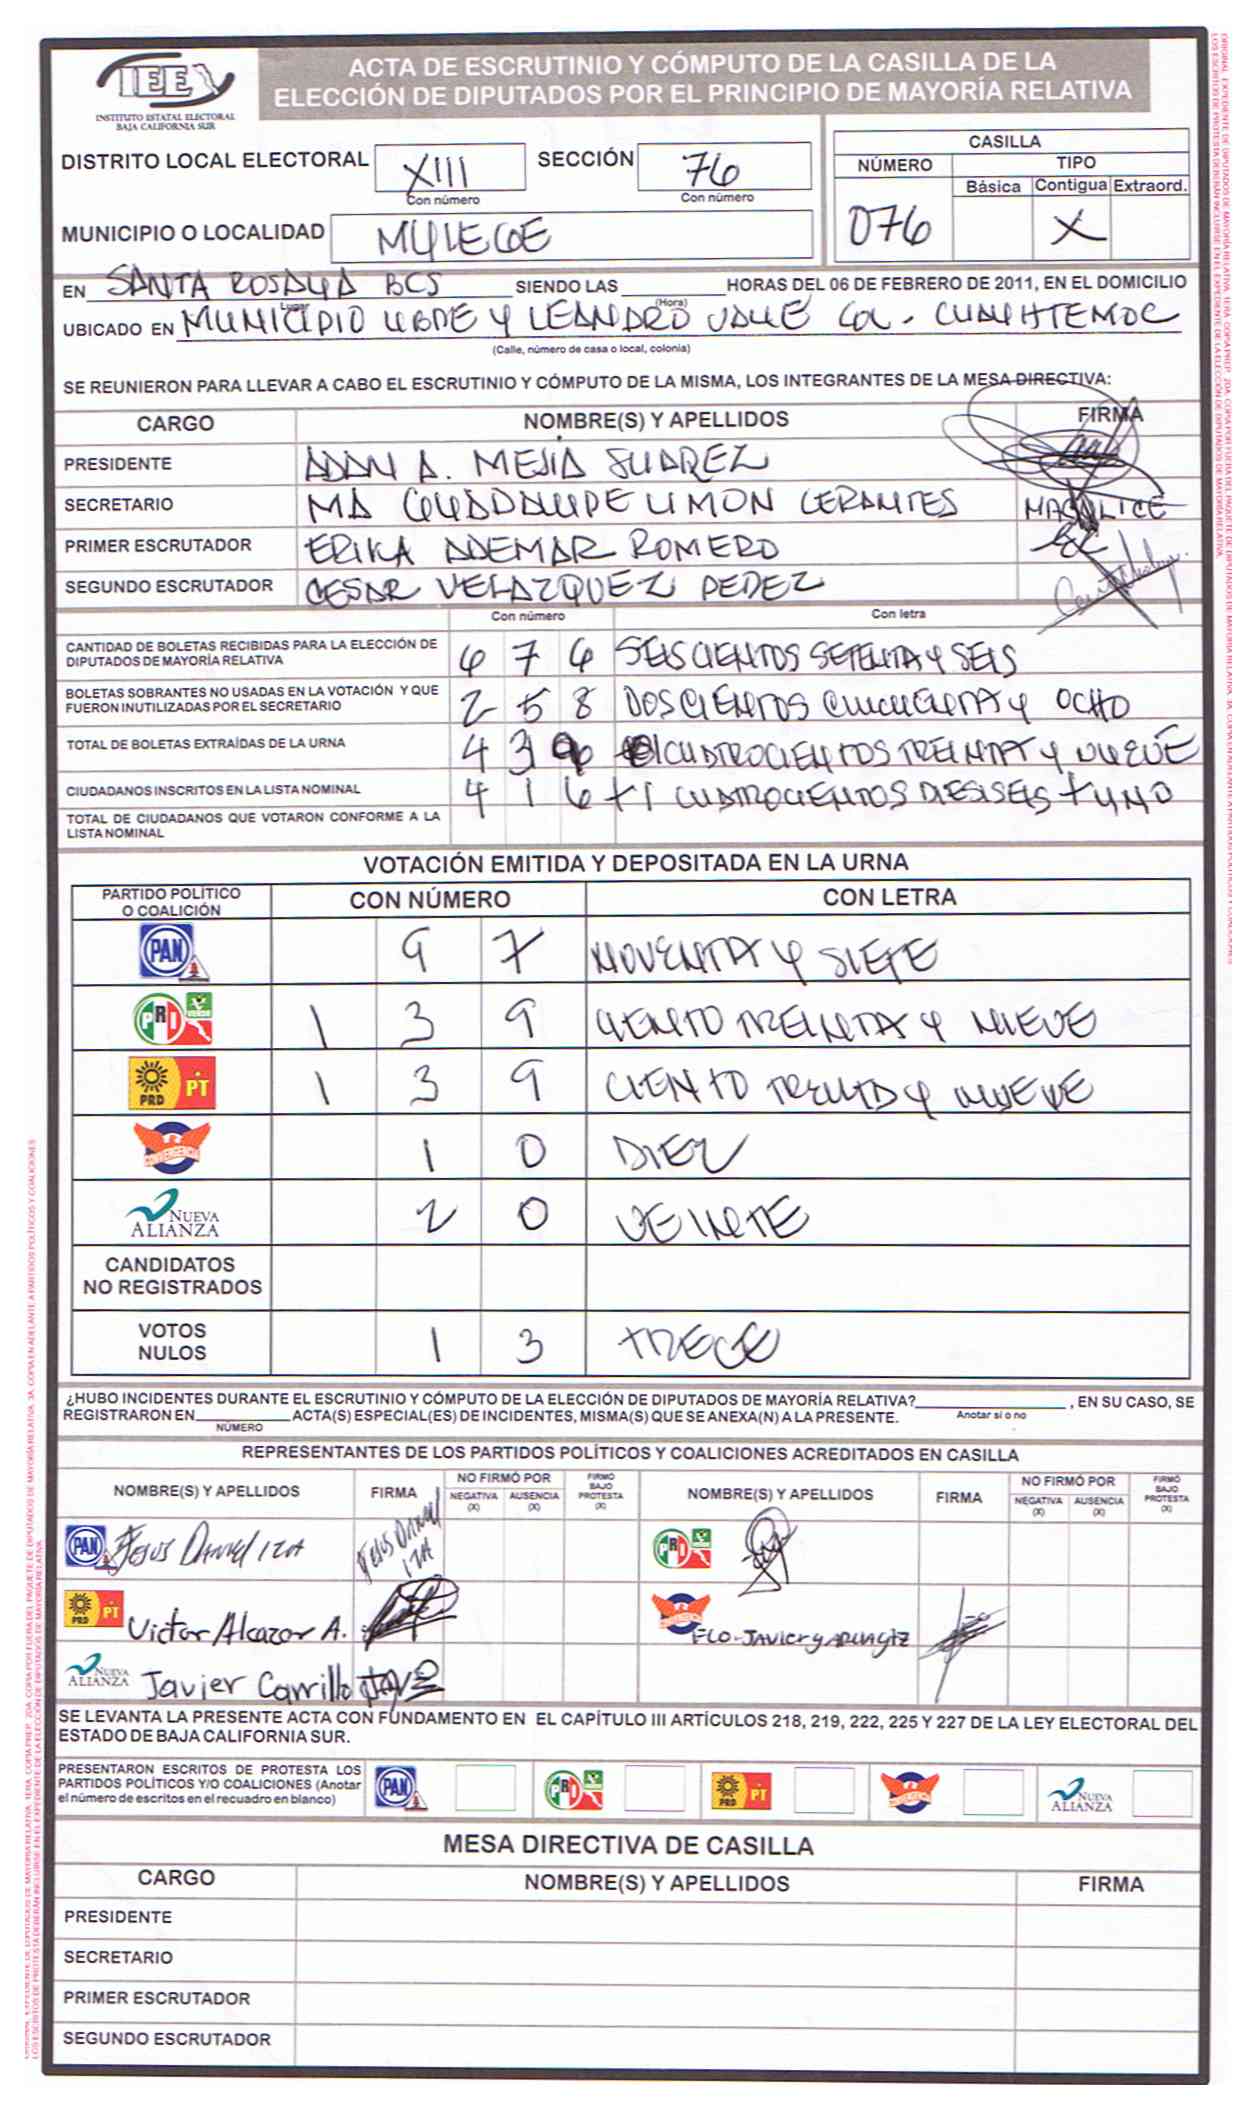 IEE
INSTITUTO ESTATAL ELECTORAL
BAJA CALIFORNIA SUR
ACTA DE ESCRUTINIO Y CÓMPUTO DE LA CASILLA DE LA
ELECCIÓN DE DIPUTADOS POR EL PRINCIPIO DE MAYORÍA RELATIVA
DISTRITO LOCAL ELECTORAL XIII SECCIÓN 76
Con número Con número
MUNICIPIO O LOCALIDAD MULEGE
CASILLA
NÚMERO TIPO
Básica Contigua Extraord.
076 X
EN SANTA ROSALIA BCS SIENDO LAS HORAS DEL 06 DE FEBRERO DE 2011, EN EL DOMICILIO
Lugar (Hora)
UBICADO EN MUNICIPIO LIBRE Y LEANDRO VALLE COL. CUAUHTEMOC
(Calle, número de casa o local, colonia)
SE REUNIERON PARA LLEVAR A CABO EL ESCRUTINIO Y CÓMPUTO DE LA MISMA, LOS INTEGRANTES DE LA MESA DIRECTIVA:
CARGO NOMBRE(S) Y APELLIDOS FIRMA
PRESIDENTE ADAN A. MEJIA SUAREZ
SECRETARIO MA GUADALUPE LIMON CERANTES
PRIMER ESCRUTADOR ERIKA ADEMAR ROMERO
SEGUNDO ESCRUTADOR CESAR VELAZQUEZ PEREZ
Con número Con letra
CANTIDAD DE BOLETAS RECIBIDAS PARA LA ELECCIÓN DE
DIPUTADOS DE MAYORÍA RELATIVA 6 7 6 SEISCIENTOS SETENTA Y SEIS
BOLETAS SOBRANTES NO USADAS EN LA VOTACIÓN Y QUE
FUERON INUTILIZADAS POR EL SECRETARIO 2 5 8 DOSCIENTOS CINCUENTA Y OCHO
TOTAL DE BOLETAS EXTRAÍDAS DE LA URNA 4 3 9 CUATROCIENTOS TREINTA Y NUEVE
CIUDADANOS INSCRITOS EN LA LISTA NOMINAL 4 1 6 +1 CUATROCIENTOS DIESISEIS + UNO
TOTAL DE CIUDADANOS QUE VOTARON CONFORME A LA
LISTA NOMINAL
VOTACIÓN EMITIDA Y DEPOSITADA EN LA URNA
PARTIDO POLÍTICO
O COALICIÓN CON NÚMERO CON LETRA
PAN 9 7 NOVENTA Y SIETE
PRI VERDE 1 3 9 CIENTO TREINTA Y NUEVE
PRD PT 1 3 9 CIENTO TREINTA Y NUEVE
CONVERGENCIA 1 0 DIEZ
NUEVA
ALIANZA 2 0 VEINTE
CANDIDATOS
NO REGISTRADOS
VOTOS
NULOS 1 3 TRECE
¿HUBO INCIDENTES DURANTE EL ESCRUTINIO Y CÓMPUTO DE LA ELECCIÓN DE DIPUTADOS DE MAYORÍA RELATIVA? , EN SU CASO, SE
REGISTRARON EN ACTA(S) ESPECIAL(ES) DE INCIDENTES, MISMA(S) QUE SE ANEXA(N) A LA PRESENTE. Anotar sí o no
NÚMERO
REPRESENTANTES DE LOS PARTIDOS POLÍTICOS Y COALICIONES ACREDITADOS EN CASILLA
NOMBRE(S) Y APELLIDOS FIRMA NO FIRMÓ POR NEGATIVA (X) AUSENCIA (X) FIRMÓ BAJO PROTESTA (X) NOMBRE(S) Y APELLIDOS FIRMA NO FIRMÓ POR NEGATIVA (X) AUSENCIA (X) FIRMÓ BAJO PROTESTA (X)
PAN JESUS DANIEL IZA JESUS DANIEL IZA PRI VERDE
PRD PT Victor Alcazar A. CONVERGENCIA FCO. JAVIER
NUEVA ALIANZA Javier Carrillo
SE LEVANTA LA PRESENTE ACTA CON FUNDAMENTO EN EL CAPÍTULO III ARTÍCULOS 218, 219, 222, 225 Y 227 DE LA LEY ELECTORAL DEL
ESTADO DE BAJA CALIFORNIA SUR.
PRESENTARON ESCRITOS DE PROTESTA LOS
PARTIDOS POLÍTICOS Y/O COALICIONES (Anotar
el número de escritos en el recuadro en blanco) PAN PRI VERDE PRD PT CONVERGENCIA NUEVA ALIANZA
MESA DIRECTIVA DE CASILLA
CARGO NOMBRE(S) Y APELLIDOS FIRMA
PRESIDENTE
SECRETARIO
PRIMER ESCRUTADOR
SEGUNDO ESCRUTADOR